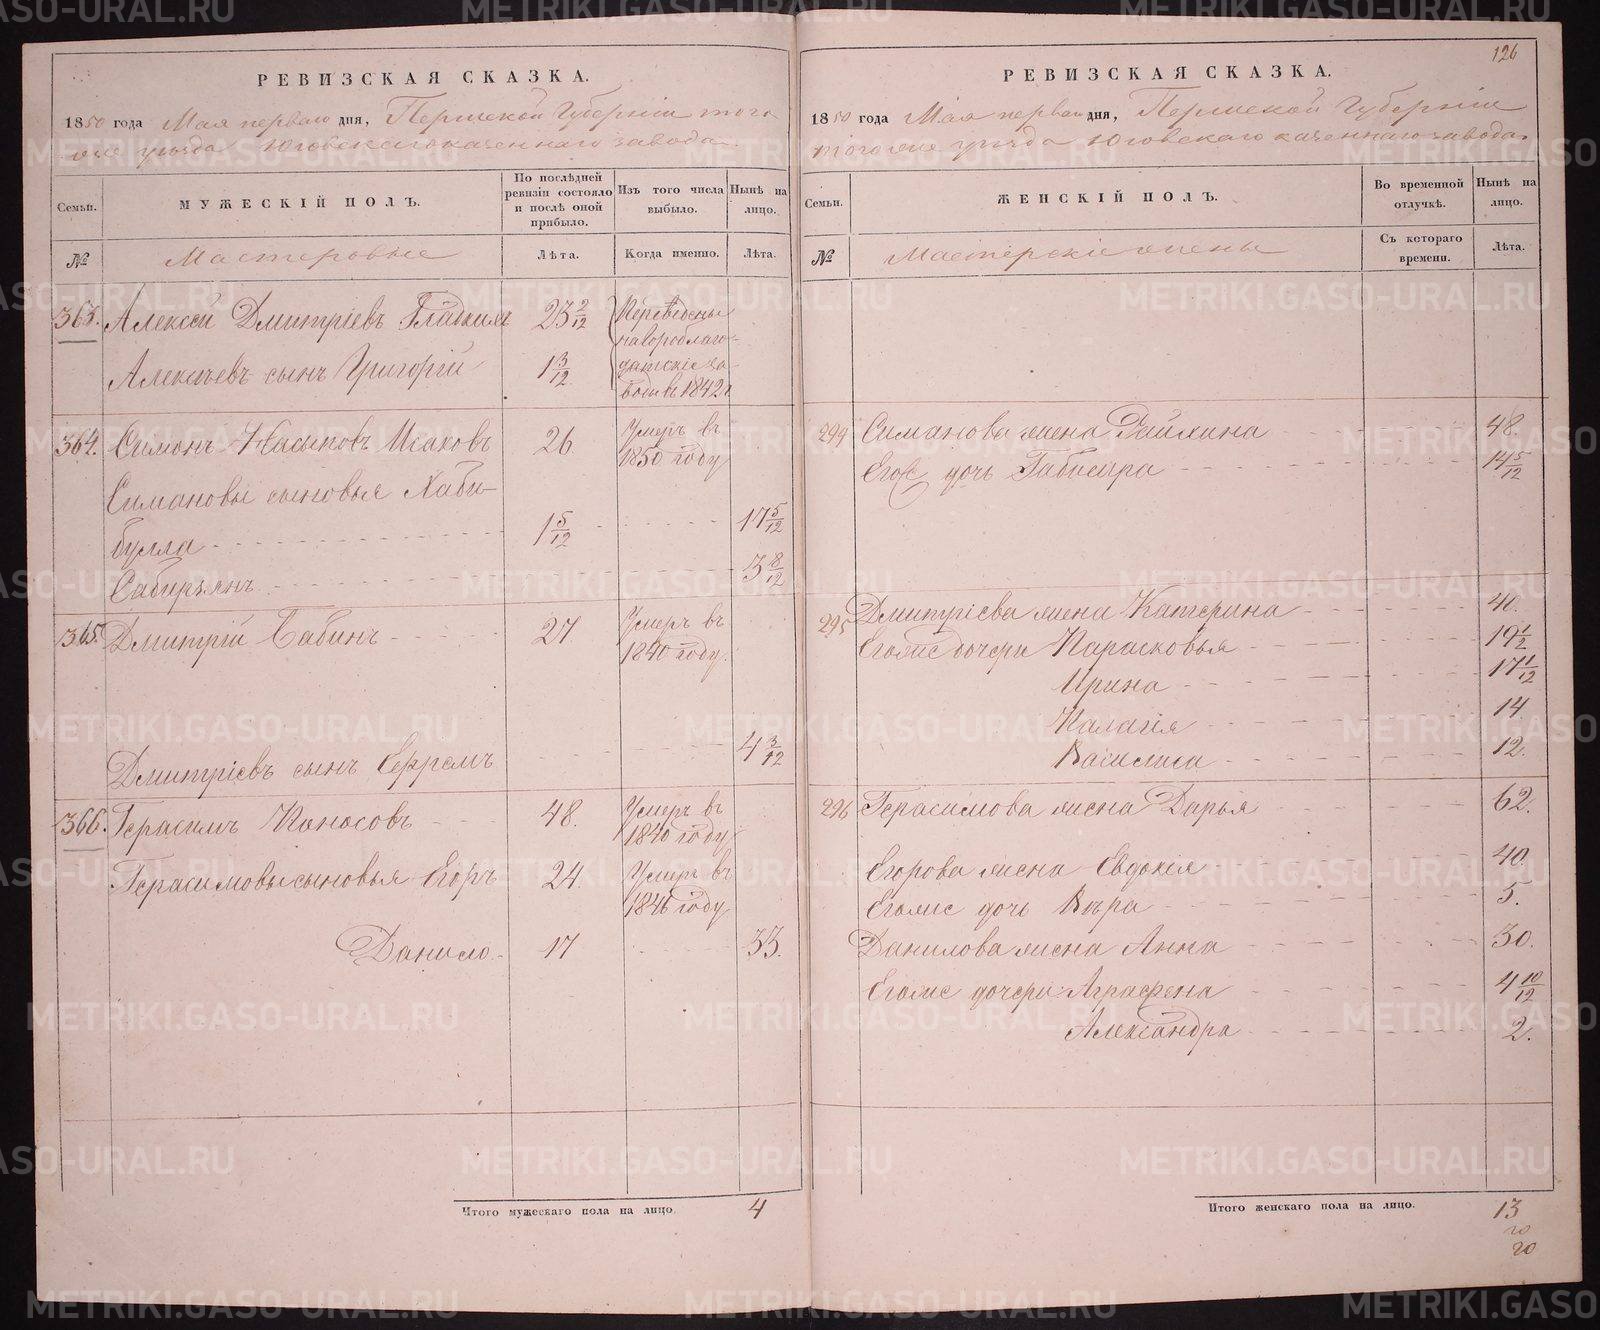 РЕВИЗСКАЯ СКАЗКА.
1850 года Мая перваго дня, Пермской Губерніи того
же уѣзда Юговскаго казеннаго завода
Семьи.
МУЖЕСКІЙ ПОЛЪ.
По послѣдней ревизіи состояло и послѣ оной прибыло.
Изъ того числа выбыло.
Нынѣ на лицо.
№
Мастеровые
Лѣта.
Когда именно.
Лѣта.
363. Алексѣй Дмитріевъ Гладкихъ 23 2/12 Переведены
на Гороблаго-
Алексѣевъ сынъ Григорій 1 3/12 датскіе за-
воды въ 1842 г
364. Симонъ Исаковъ 26 Умеръ въ
1850 году
Симановы сыновья Хаби-
булла 1 5/12 17 5/12
Сабирзянъ 3 8/12
365. Дмитрій Бабинъ 27 Умеръ въ
1840 году.
Дмитріевъ сынъ Ефремъ 4 3/12
366. Герасимъ Коносовъ 48. Умеръ въ
1840 году
Герасимовы сыновья Егоръ 24. Умеръ въ
1846 году
Данило 17 33.
Итого мужескаго пола на лицо. 4
126
РЕВИЗСКАЯ СКАЗКА.
1850 года Мая перваго дня, Пермской Губерніи
того же уѣзда Юговскаго казеннаго завода.
Семьи.
ЖЕНСКІЙ ПОЛЪ.
Во временной отлучкѣ.
Нынѣ на лицо.
№
Мастерскіе жены
Съ котораго времени.
Лѣта.
294 Симанова жена 48.
Его дочь 14 5/12
295 Дмитріева жена Катерина 40.
Егоже дочери Парасковья 19 1/2
Ирина 17 1/12
Палагія 14
Василиса 12.
296 Герасимова жена Дарья 62.
Егорова жена Евдокія 40.
Егоже дочь Вѣра 5.
Данилова жена Анна 30.
Егоже дочери Аграфена 4 10/12
Александра 2.
Итого женскаго пола на лицо. 13
20
METRIKI.GASO-URAL.RU